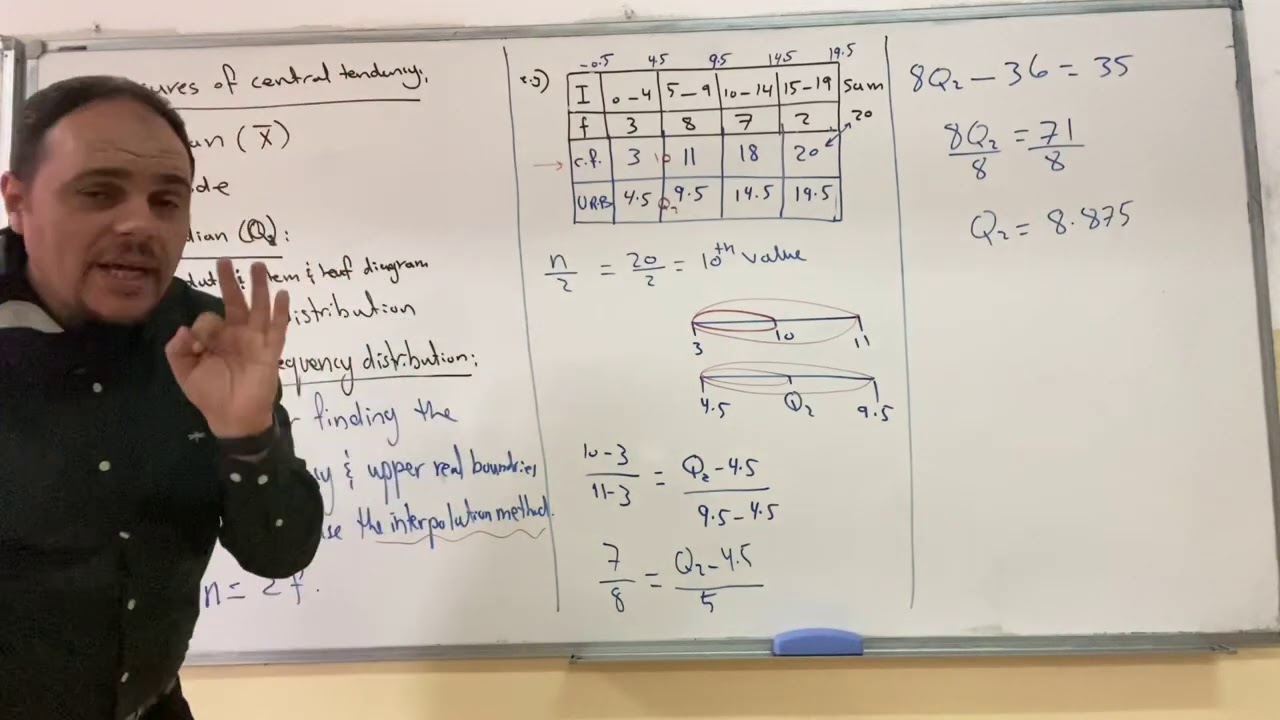 ures of central tendency.
an (x̄)
de
dian (Q₂):
stem & leaf diagram
istribution
equency distribution:
finding the
y & upper real boundries
use the interpolation method.
n = Σf.
e.g)
-0.5 4.5 9.5 14.5 19.5
I 0-4 5-9 10-14 15-19 Sum
f 3 8 7 2 20
c.f. 3 10 11 18 20
U.R.B 4.5 Q₂ 9.5 14.5 19.5
n/2 = 20/2 = 10th value
3 10 11
4.5 Q₂ 9.5
10-3/11-3 = Q₂-4.5/9.5-4.5
7/8 = Q₂-4.5/5
8Q₂ - 36 = 35
8Q₂/8 = 71/8
Q₂ = 8.875